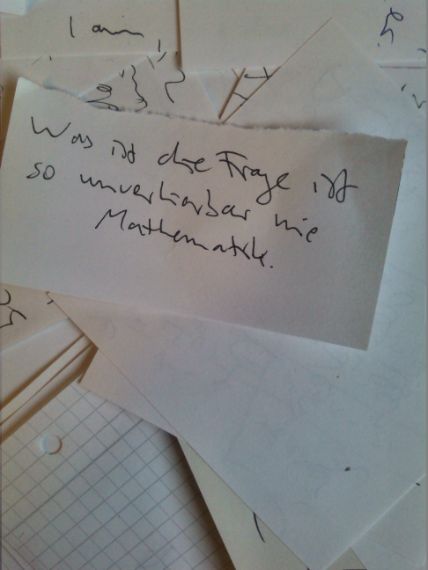 I am,
Was ist die Frage ist
so unverlierbar wie
Mathematik.